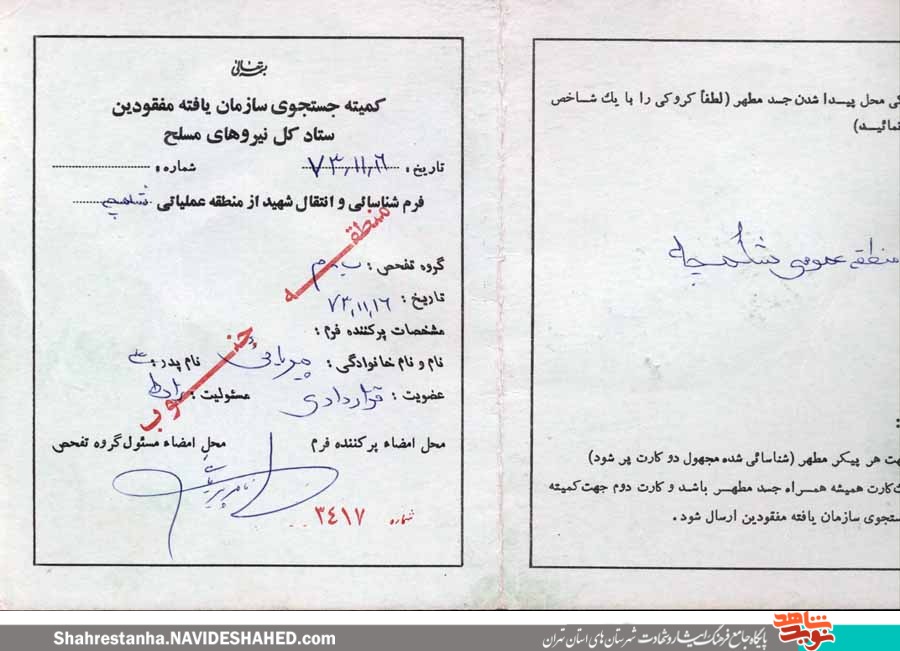 بسمه تعالی
کمیته جستجوی سازمان یافته مفقودین
ستاد کل نیروهای مسلح
تاریخ : ۷۳٫۱۱٫۱۶ شماره :
فرم شناسائی و انتقال شهید از منطقه عملیاتی شلمچه
منطقه جنوب
گروه تفحص :
تاریخ : ۷۳٫۱۱٫۱۶
مشخصات پرکننده فرم :
نام و نام خانوادگی : نام پدر : علی
عضویت : قراردادی مسئولیت : رابط
محل امضاء پرکننده فرم محل امضاء مسئول گروه تفحص
شماره ۳۴۱۷
کی محل پیدا شدن جسد مطهر (لطفاً کروکی را با یك شاخص
نمائید)
منطقه عمومی شلمچه
:
هت هر پیکر مطهر (شناسائی شده مجهول دو کارت پر شود)
كارت همیشه همراه جسد مطهر باشد و کارت دوم جهت کمیته
ستجوی سازمان یافته مفقودین ارسال شود .
Shahrestanha.NAVIDESHAHED.com
پایگاه جامع فرهنگ ایثار و شهادت شهرستان های استان تهران
نوید شاهد